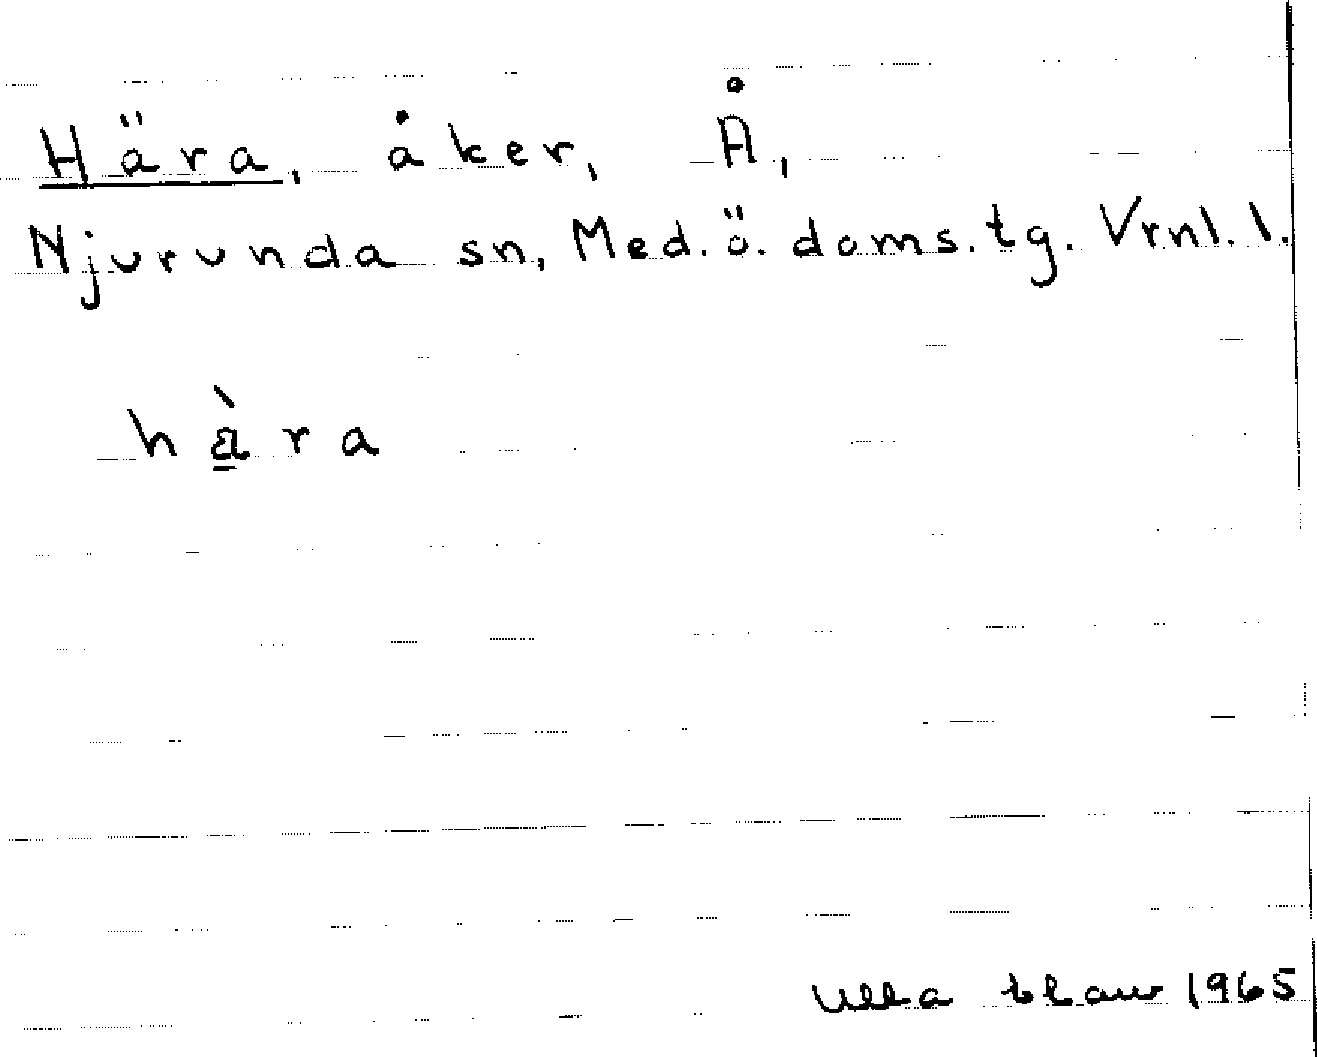 Hära, åker, Å,
Njurunda sn, Med. ö. doms. tg. Vrnl. l.
hàra
Ulla 1965